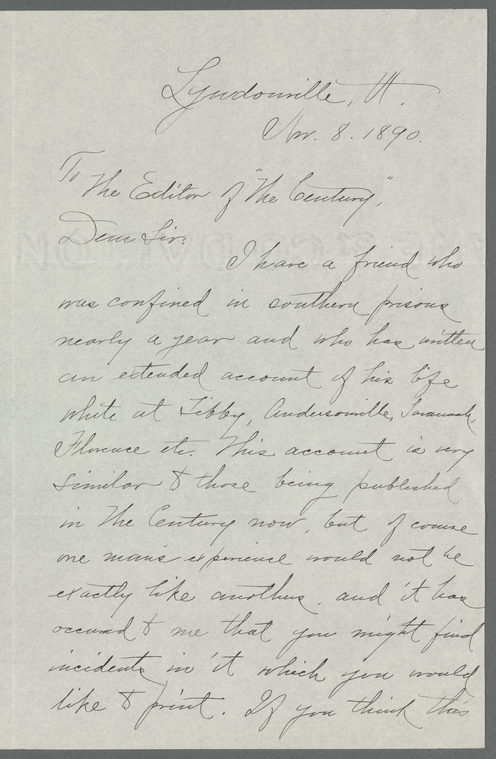 Lyndonville, Vt.
Nov. 8. 1890.
To
The Editor of "The Century",
Dear Sir:
I have a friend who
was confined in southern prisons
nearly a year and who has written
an extended account of his life
while at Libby, Andersonville, Savannah,
Florence etc. This account is very
similar to those being published
in The Century now, but of course
one man's experience would not be
exactly like anothers, and it has
occured to me that you might find
incidents in it which you would
like to print. If you think this